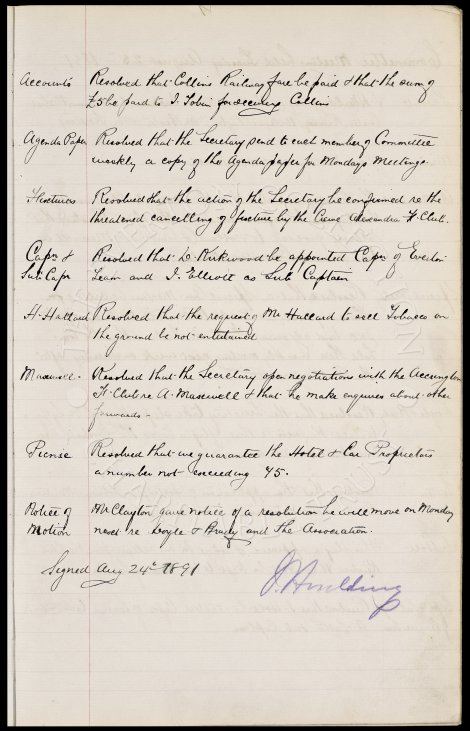 Accounts Resolved that Collins Railway fare be paid & that the sum of
£5 be paid to J. Tobin for securing Collins
Agenda Paper Resolved that the Secretary send to each member of Committee
weekly a copy of the Agenda paper for Mondays Meetings.
Fixtures Resolved that the action of the Secretary be confirmed re the
threatened cancelling of fixture by the Crewe Alexandra F. Club.
Capn & Resolved that D. Kirkwood be appointed Capn of Everton
Sub Capn Team and J. Elliott as Sub Captain
H. Hallard Resolved that the request of Mr Hallard to sell Tobacco on
the ground be not entertained
Maxwell - Resolved that the Secretary open negotiations with the Accrington
F. Club re A. Maxwell & that he make enquires about other
forwards -
Picnic Resolved that we guarantee the Hotel & Car Proprietors
a number not exceeding 75.
Notice of Mr Clayton gave notice of a resolution he will move on Monday
Motion next re Doyle & Brady and the Association.
Signed Aug 24th 1891
J. Houlding